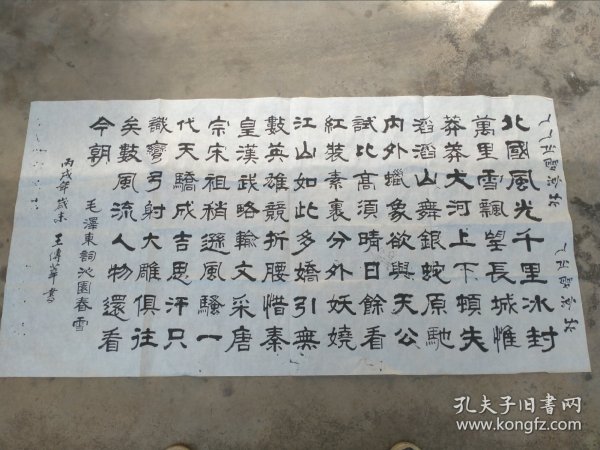 北國風光千里冰封
萬里雪飄望長城惟
莽莽大河上下頓失
滔滔山舞銀蛇原馳
内外蠟象欲與天公
試比高須晴日餘看
紅裝素裹分外妖嬈
江山如此多嬌引無
數英雄競折腰惜秦
皇漢武略輸文采唐
宗宋祖稍遜風騷一
代天驕成吉思汗只
識彎弓射大雕俱往
矣數風流人物還看
今朝
毛澤東詞沁園春雪
丙戌年歲末王傳華書
孔夫子旧书网
www.kongfz.com